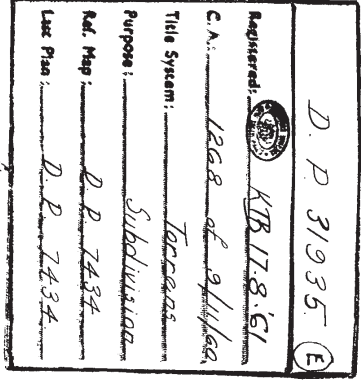 D. P 31935 (E)
Registered: KTB 17.8.'61
C. A.: 1268 of 9/11/60
Title System: Torrens
Purpose: Subdivision
Ref. Map: D. P. 7434
Last Plan: D. P. 7434